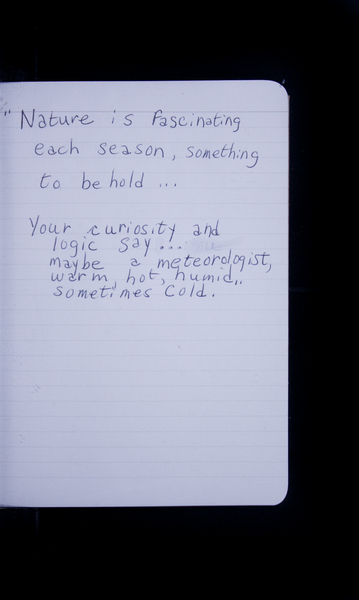 "Nature is fascinating
each season, something
to behold ...
Your curiosity and
logic say...
maybe a meteorologist,
warm, hot, humid,.
sometimes cold.